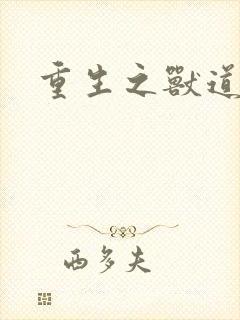 重生之獸道
西多夫